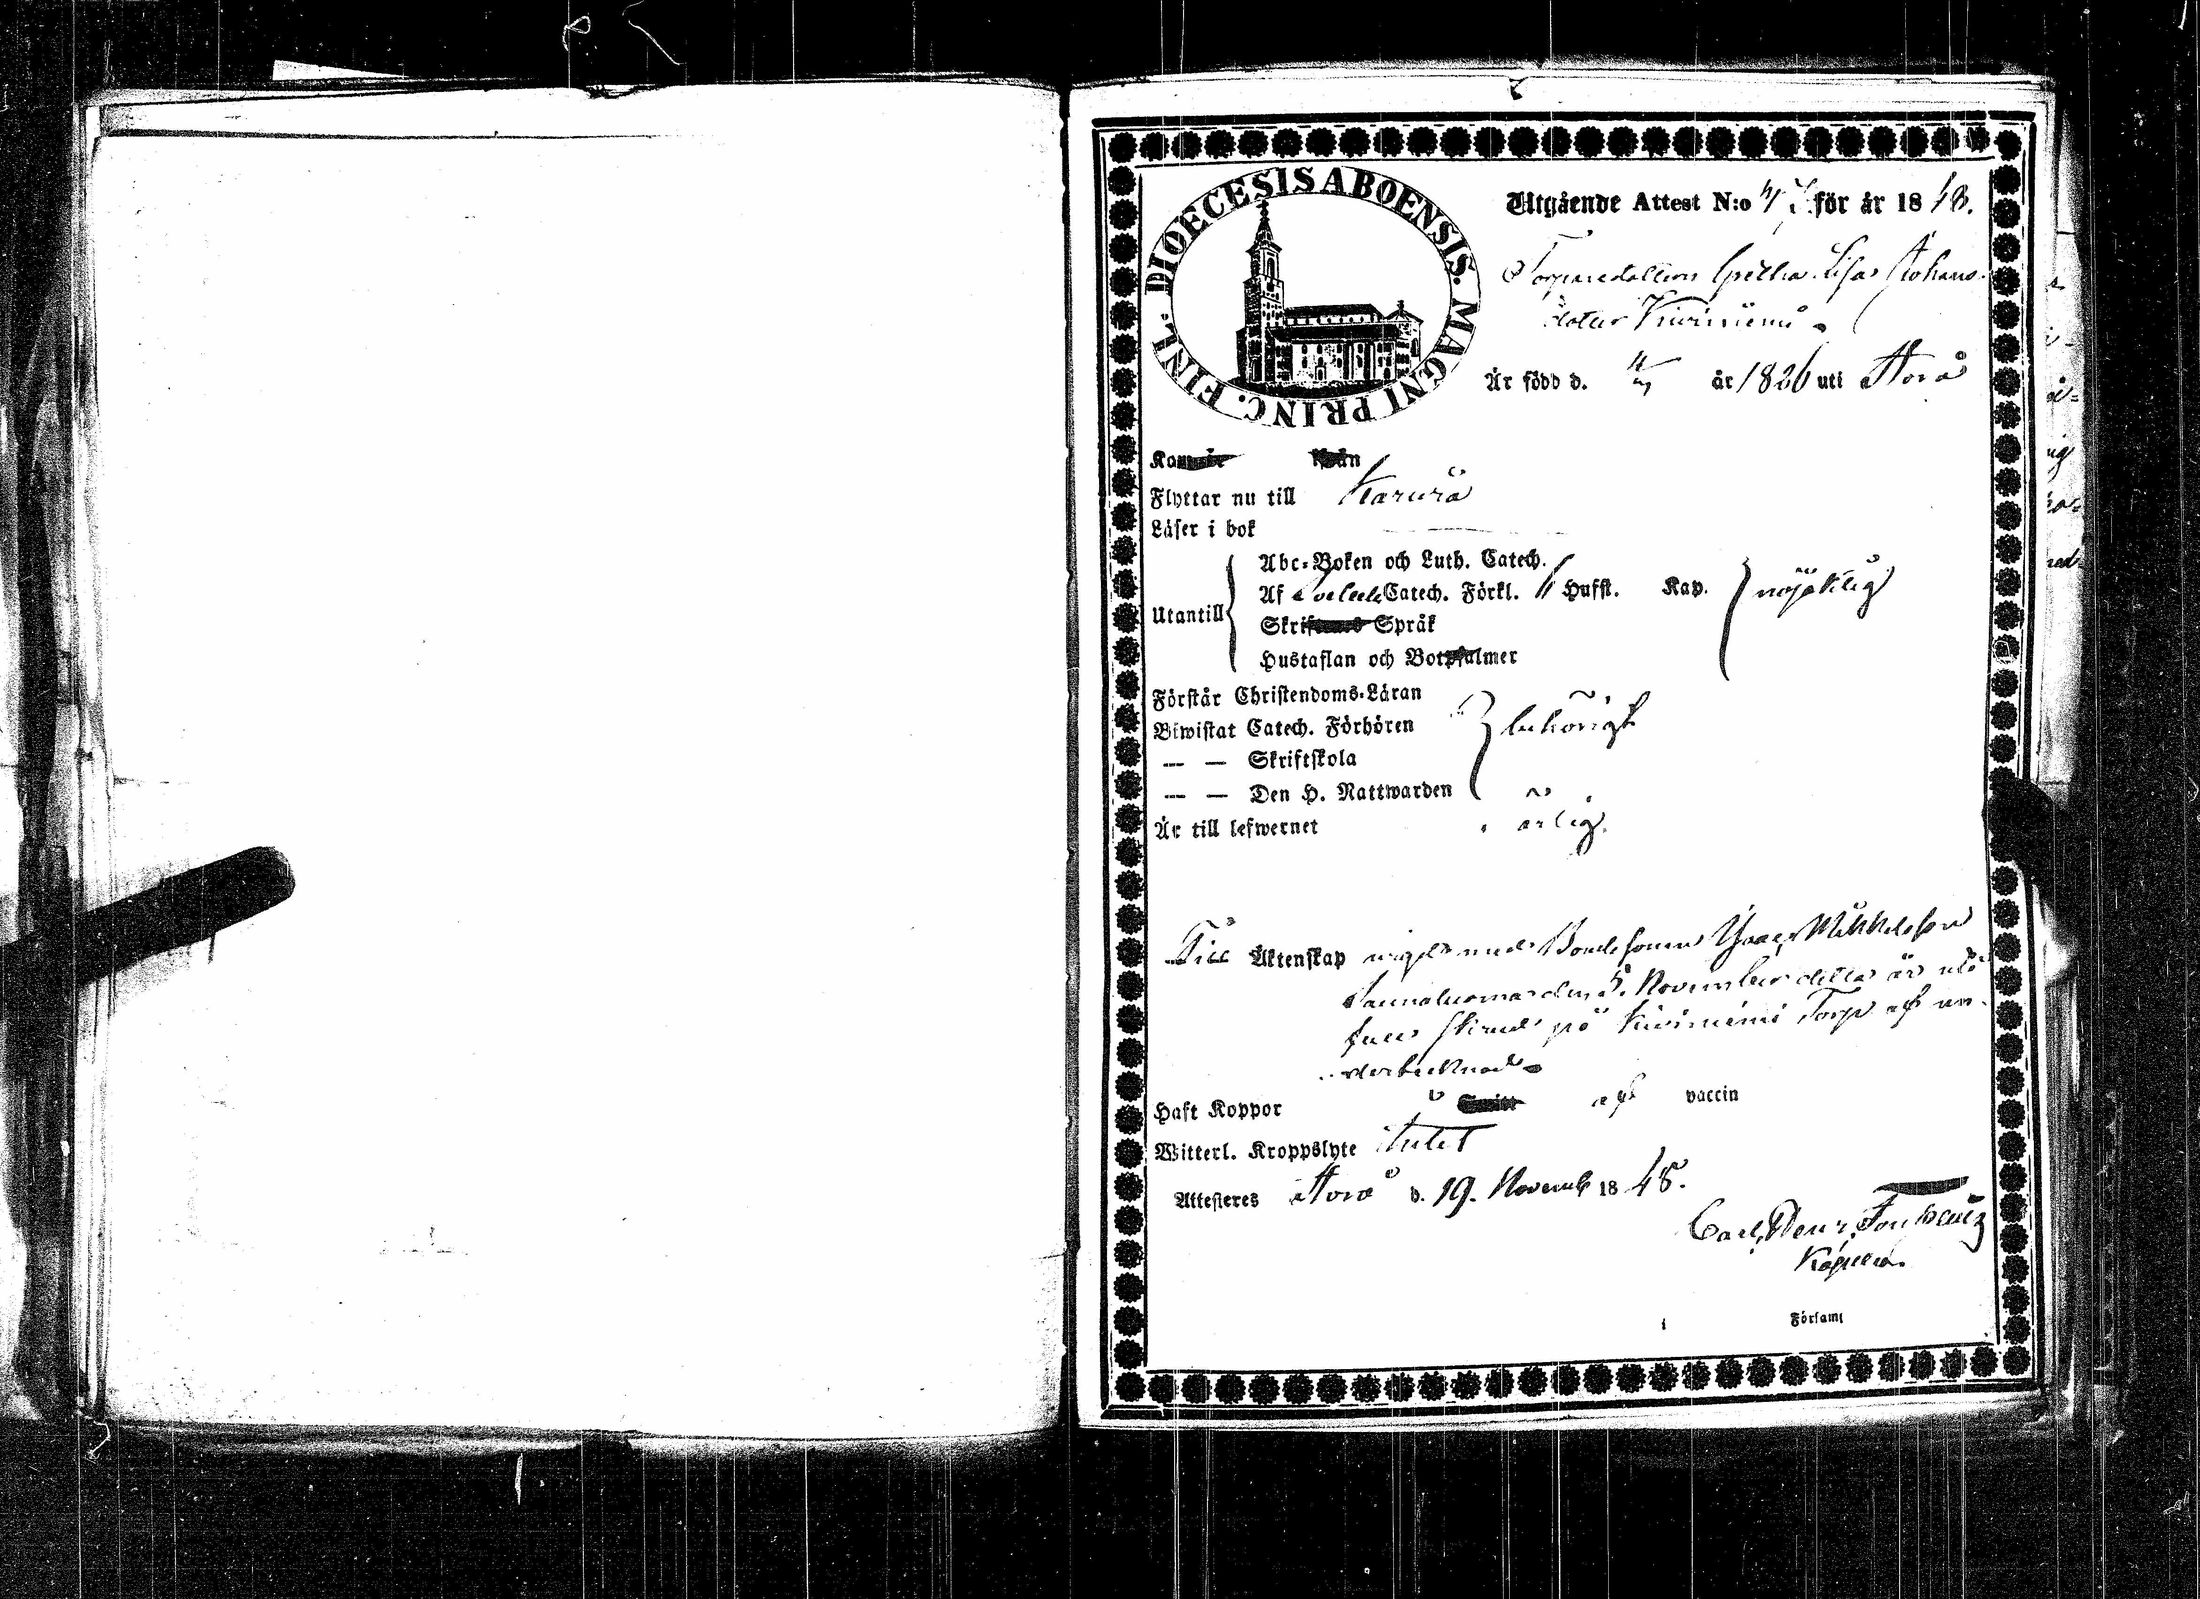 DIOECESIS ABOENSIS. MAGNI PRINC. FINL.
Utgående Attest N:o 47 för år 1848.
Torparedottern Greta Lisa Johans-
dotter Kiviniemi
Är född d. år 1826 uti Storå
Flyttar nu till Karvia
Läser i bok
Abc-Boken och Luth. Catech.
Af Svebelii Catech. Förkl. Hufst. Kap. nöjaktig
Utantill
Språk
Hustaflan och Botpsalmer
Förstår Christendoms-Läran
Biwistat Catech. Förhören behörigt
— — Skriftskola
— — Den H. Nattwarden
Är till lefwernet ärlig.
Till Äktenskap vigd med Bondesonen Isaac Mikkelsson
den 5. November detta år
på Kiviniemi Torp af un-
dertecknad
Haft Koppor af vaccin
Witterl. Kroppslyte intet
Attesteres Storå d. 19. Novemb 1848.
Carl Henr.
Kapellan.
i Församl